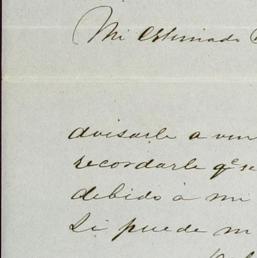 Mi estimado
avisarle a ven
recordarle qe se
debido á mi
Si puede m